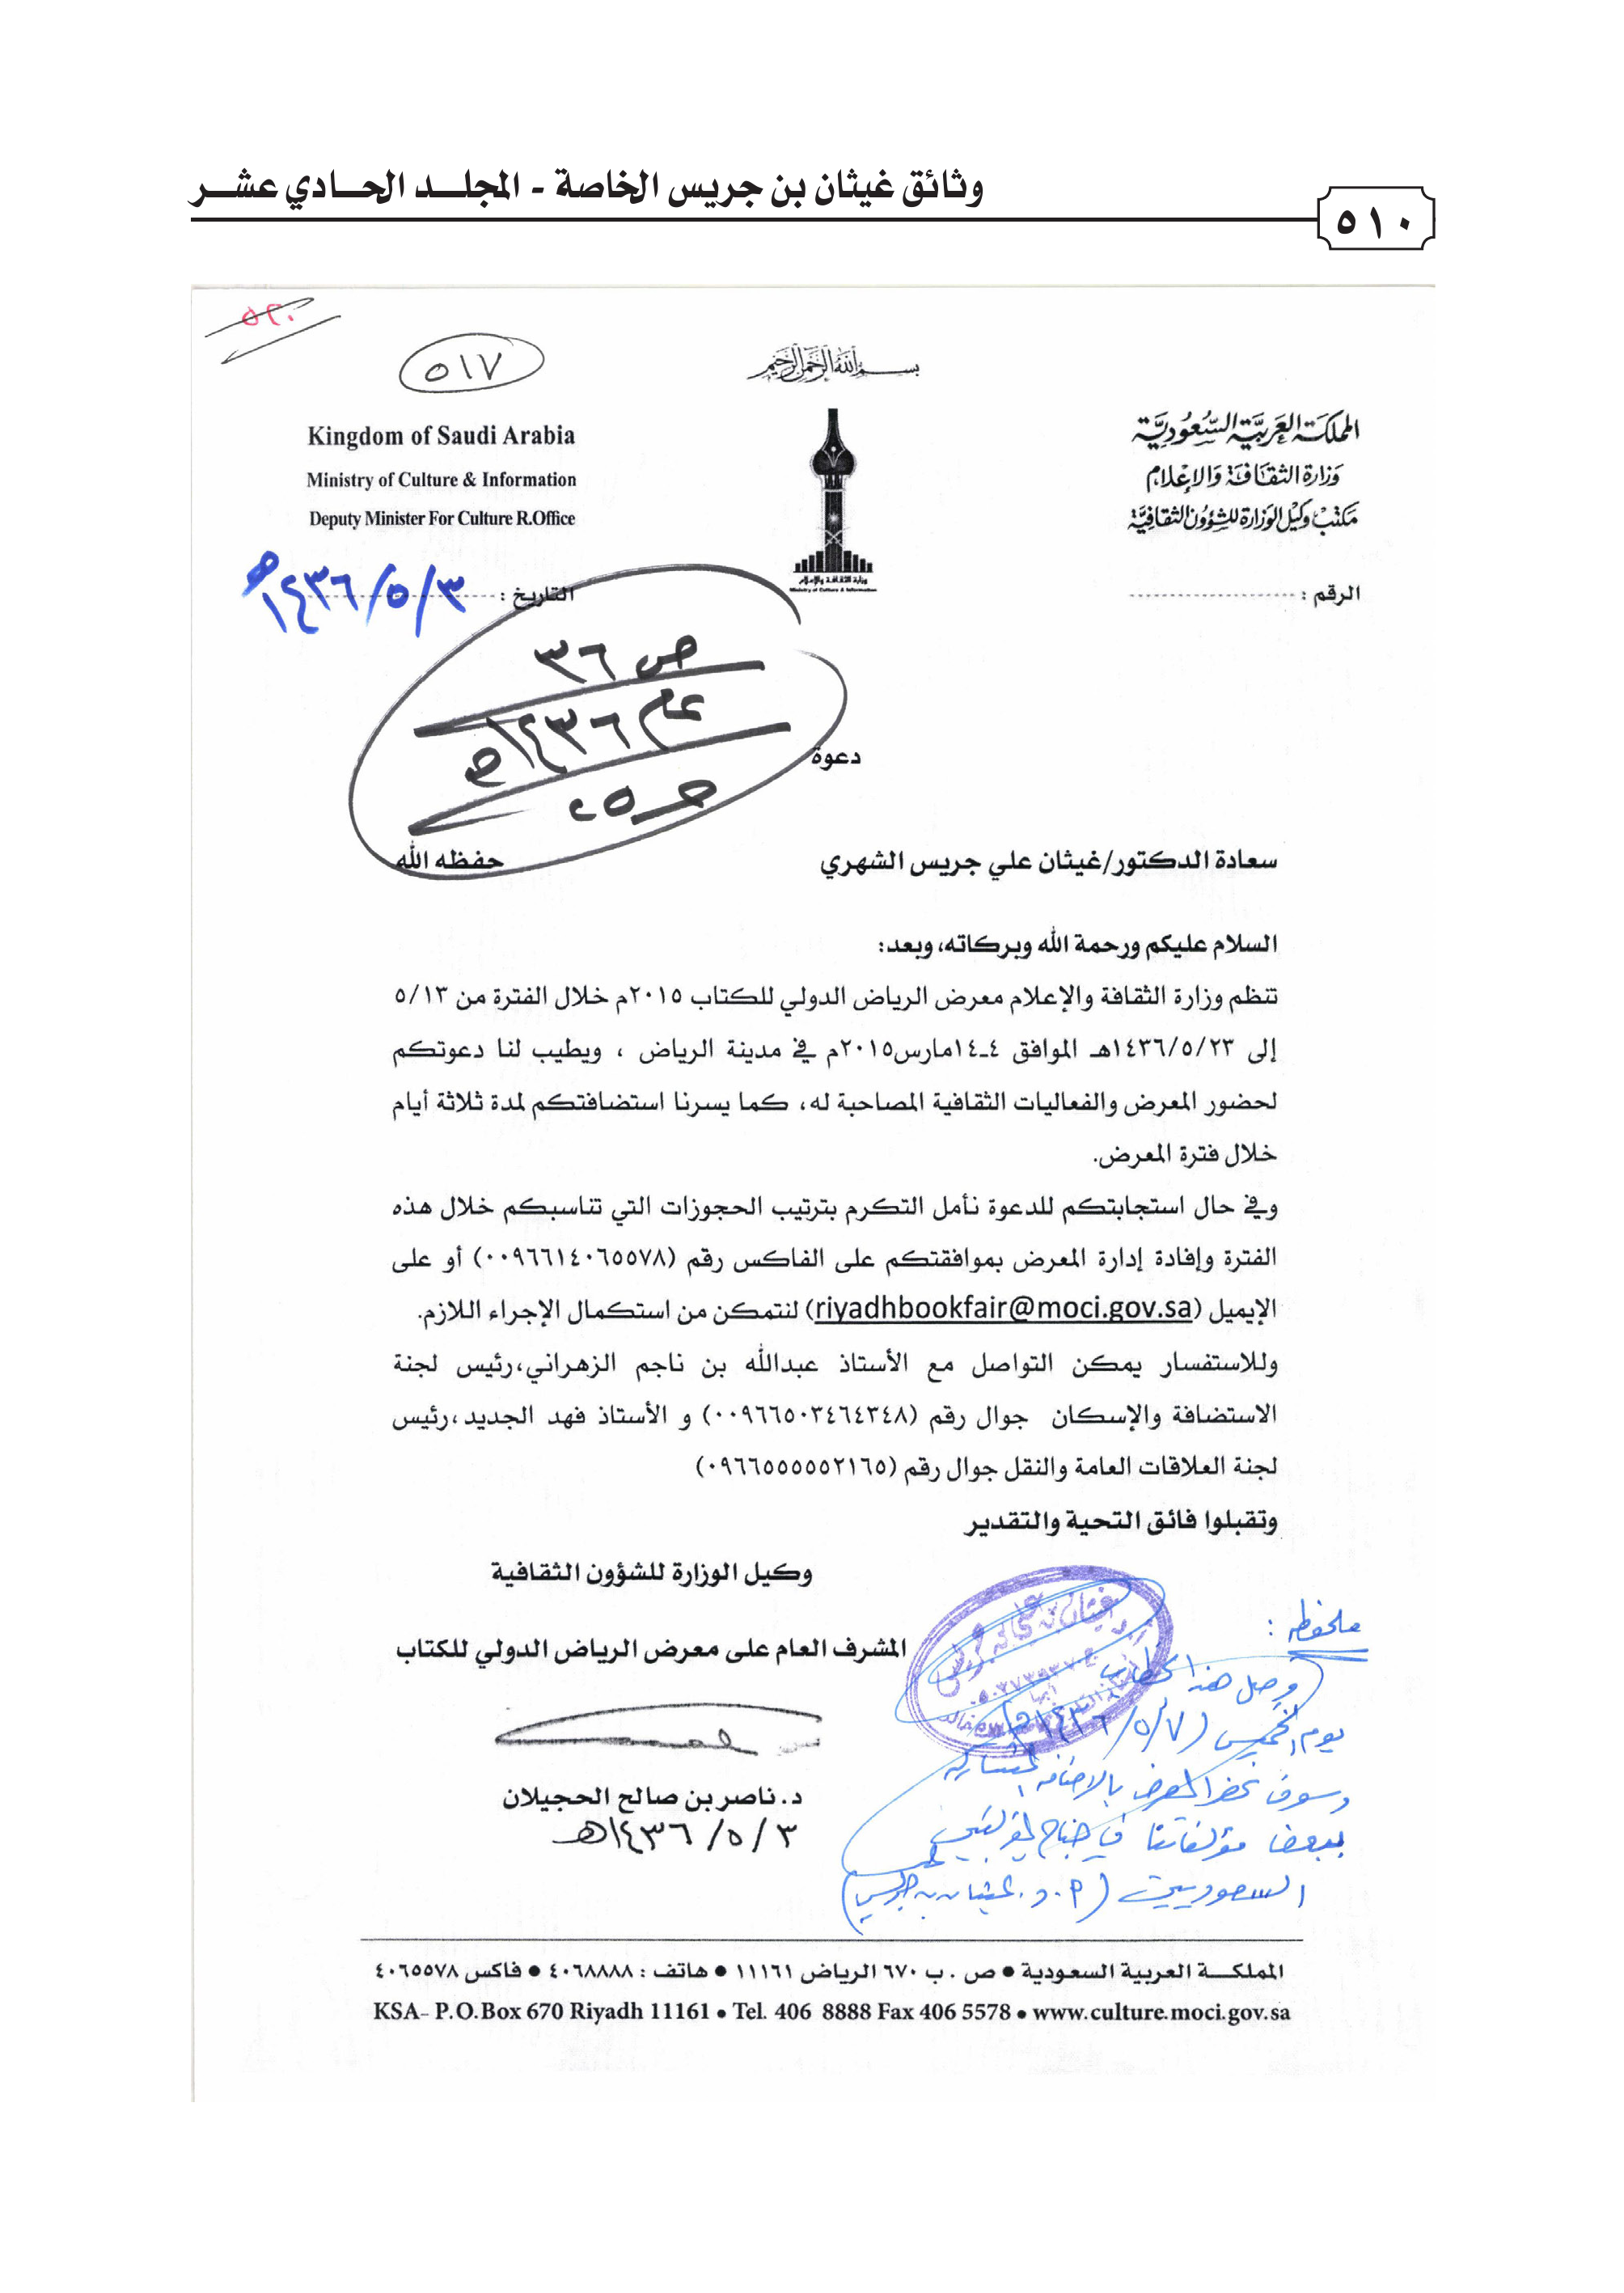 وثائق غيثان بن جريس الخاصة - المجلد الحادي عشر
٥١٠
٥٢٠
٥١٧
بسم الله الرحمن الرحيم
المملكة العربية السعودية
وزارة الثقافة والإعلام
مكتب وكيل الوزارة للشؤون الثقافية
الرقم :
Kingdom of Saudi Arabia
Ministry of Culture & Information
Deputy Minister For Culture R.Office
التاريخ : ٣/٥/١٤٣٦هـ
وزارة الثقافة والإعلام
Ministry of Culture & Information
ص ٣٦
عام ١٤٣٦هـ
دعوة
سعادة الدكتور/غيثان علي جريس الشهري حفظه الله
السلام عليكم ورحمة الله وبركاته، وبعد:
تنظم وزارة الثقافة والإعلام معرض الرياض الدولي للكتاب ٢٠١٥م خلال الفترة من ٥/١٣
إلى ١٤٣٦/٥/٢٣هـ الموافق ٤-١٤مارس٢٠١٥م في مدينة الرياض ، ويطيب لنا دعوتكم
لحضور المعرض والفعاليات الثقافية المصاحبة له، كما يسرنا استضافتكم لمدة ثلاثة أيام
خلال فترة المعرض.
وفي حال استجابتكم للدعوة نأمل التكرم بترتيب الحجوزات التي تناسبكم خلال هذه
الفترة وإفادة إدارة المعرض بموافقتكم على الفاكس رقم (٠٠٩٦٦١٤٠٦٥٥٧٨) أو على
الإيميل (riyadhbookfair@moci.gov.sa) لنتمكن من استكمال الإجراء اللازم.
وللاستفسار يمكن التواصل مع الأستاذ عبدالله بن ناجم الزهراني،رئيس لجنة
الاستضافة والإسكان جوال رقم (٠٠٩٦٦٥٠٣٤٦٤٣٤٨) و الأستاذ فهد الجديد،رئيس
لجنة العلاقات العامة والنقل جوال رقم (٠٩٦٦٥٥٥٥٥٢١٦٥)
وتقبلوا فائق التحية والتقدير
وكيل الوزارة للشؤون الثقافية
المشرف العام على معرض الرياض الدولي للكتاب
د. ناصر بن صالح الحجيلان
٣ /٥ /١٤٣٦هـ
ملحوظة :
وصل هذا الخطاب
يوم الخميس (٧/٥/١٤٣٦هـ)
وسوف نحضر المعرض بالإضافة للمشاركة
ببعض مؤلفاتنا في جناح المؤلفين
السعوديين (أ.د. غيثان بن جريس)
المملكة العربية السعودية • ص . ب ٦٧٠ الرياض ١١١٦١ • هاتف : ٤٠٦٨٨٨٨ • فاكس ٤٠٦٥٥٧٨
KSA- P.O.Box 670 Riyadh 11161 • Tel. 406 8888 Fax 406 5578 • www.culture.moci.gov.sa